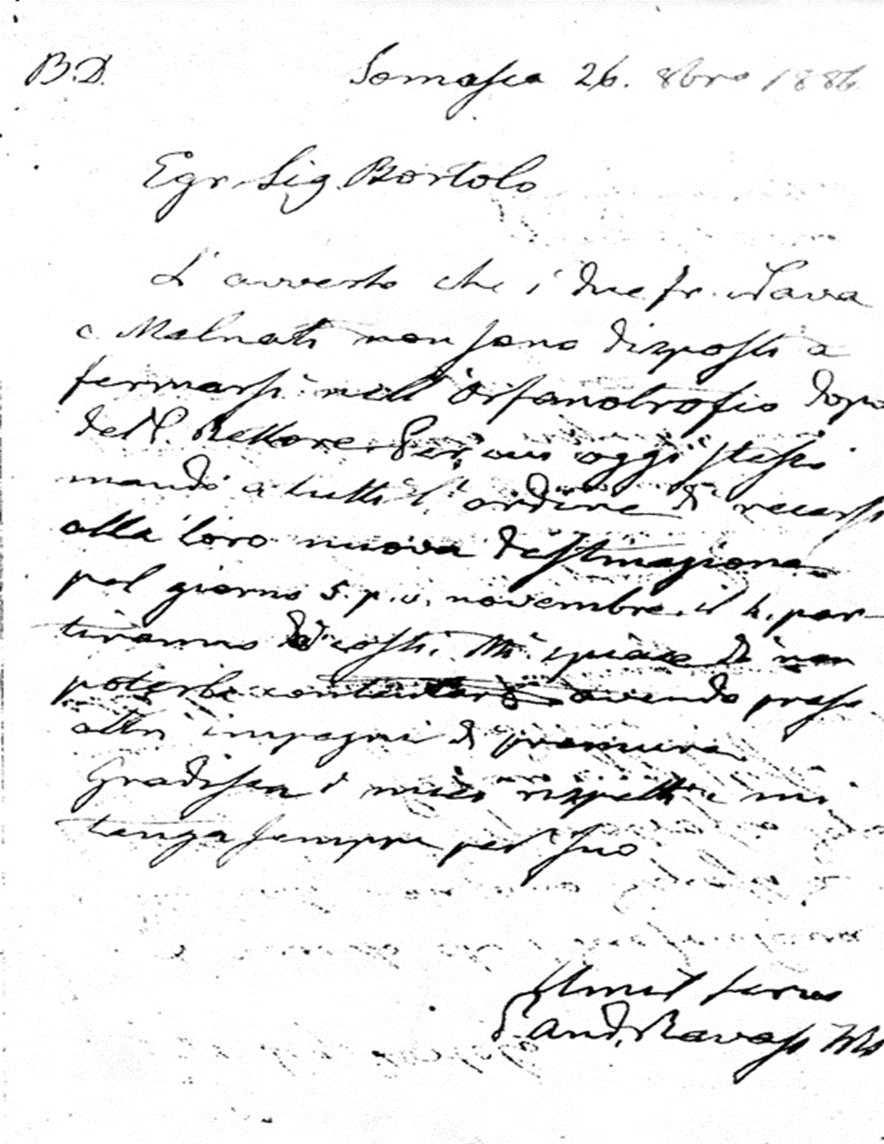 B.D. Somasca 26. 8bre 1886
Egr. Sig. Bortolo
L'avverto che i due fr. Nava
e Malnati non sono disposti a
fermarsi nell'Orfanotrofio dopo
del P. Rettore oggi stesso
mando a tutti l'ordine di recarsi
alla loro nuova destinazione
pel giorno 5. p. v. novembre. il 4. par-
tiranno da costì. Mi spiace di non
poterla contentare avendo preso
altri impegni di premura.
Gradisca i miei rispetti e mi
tenga sempre pel suo
Umil servo
P. And. Ravasi